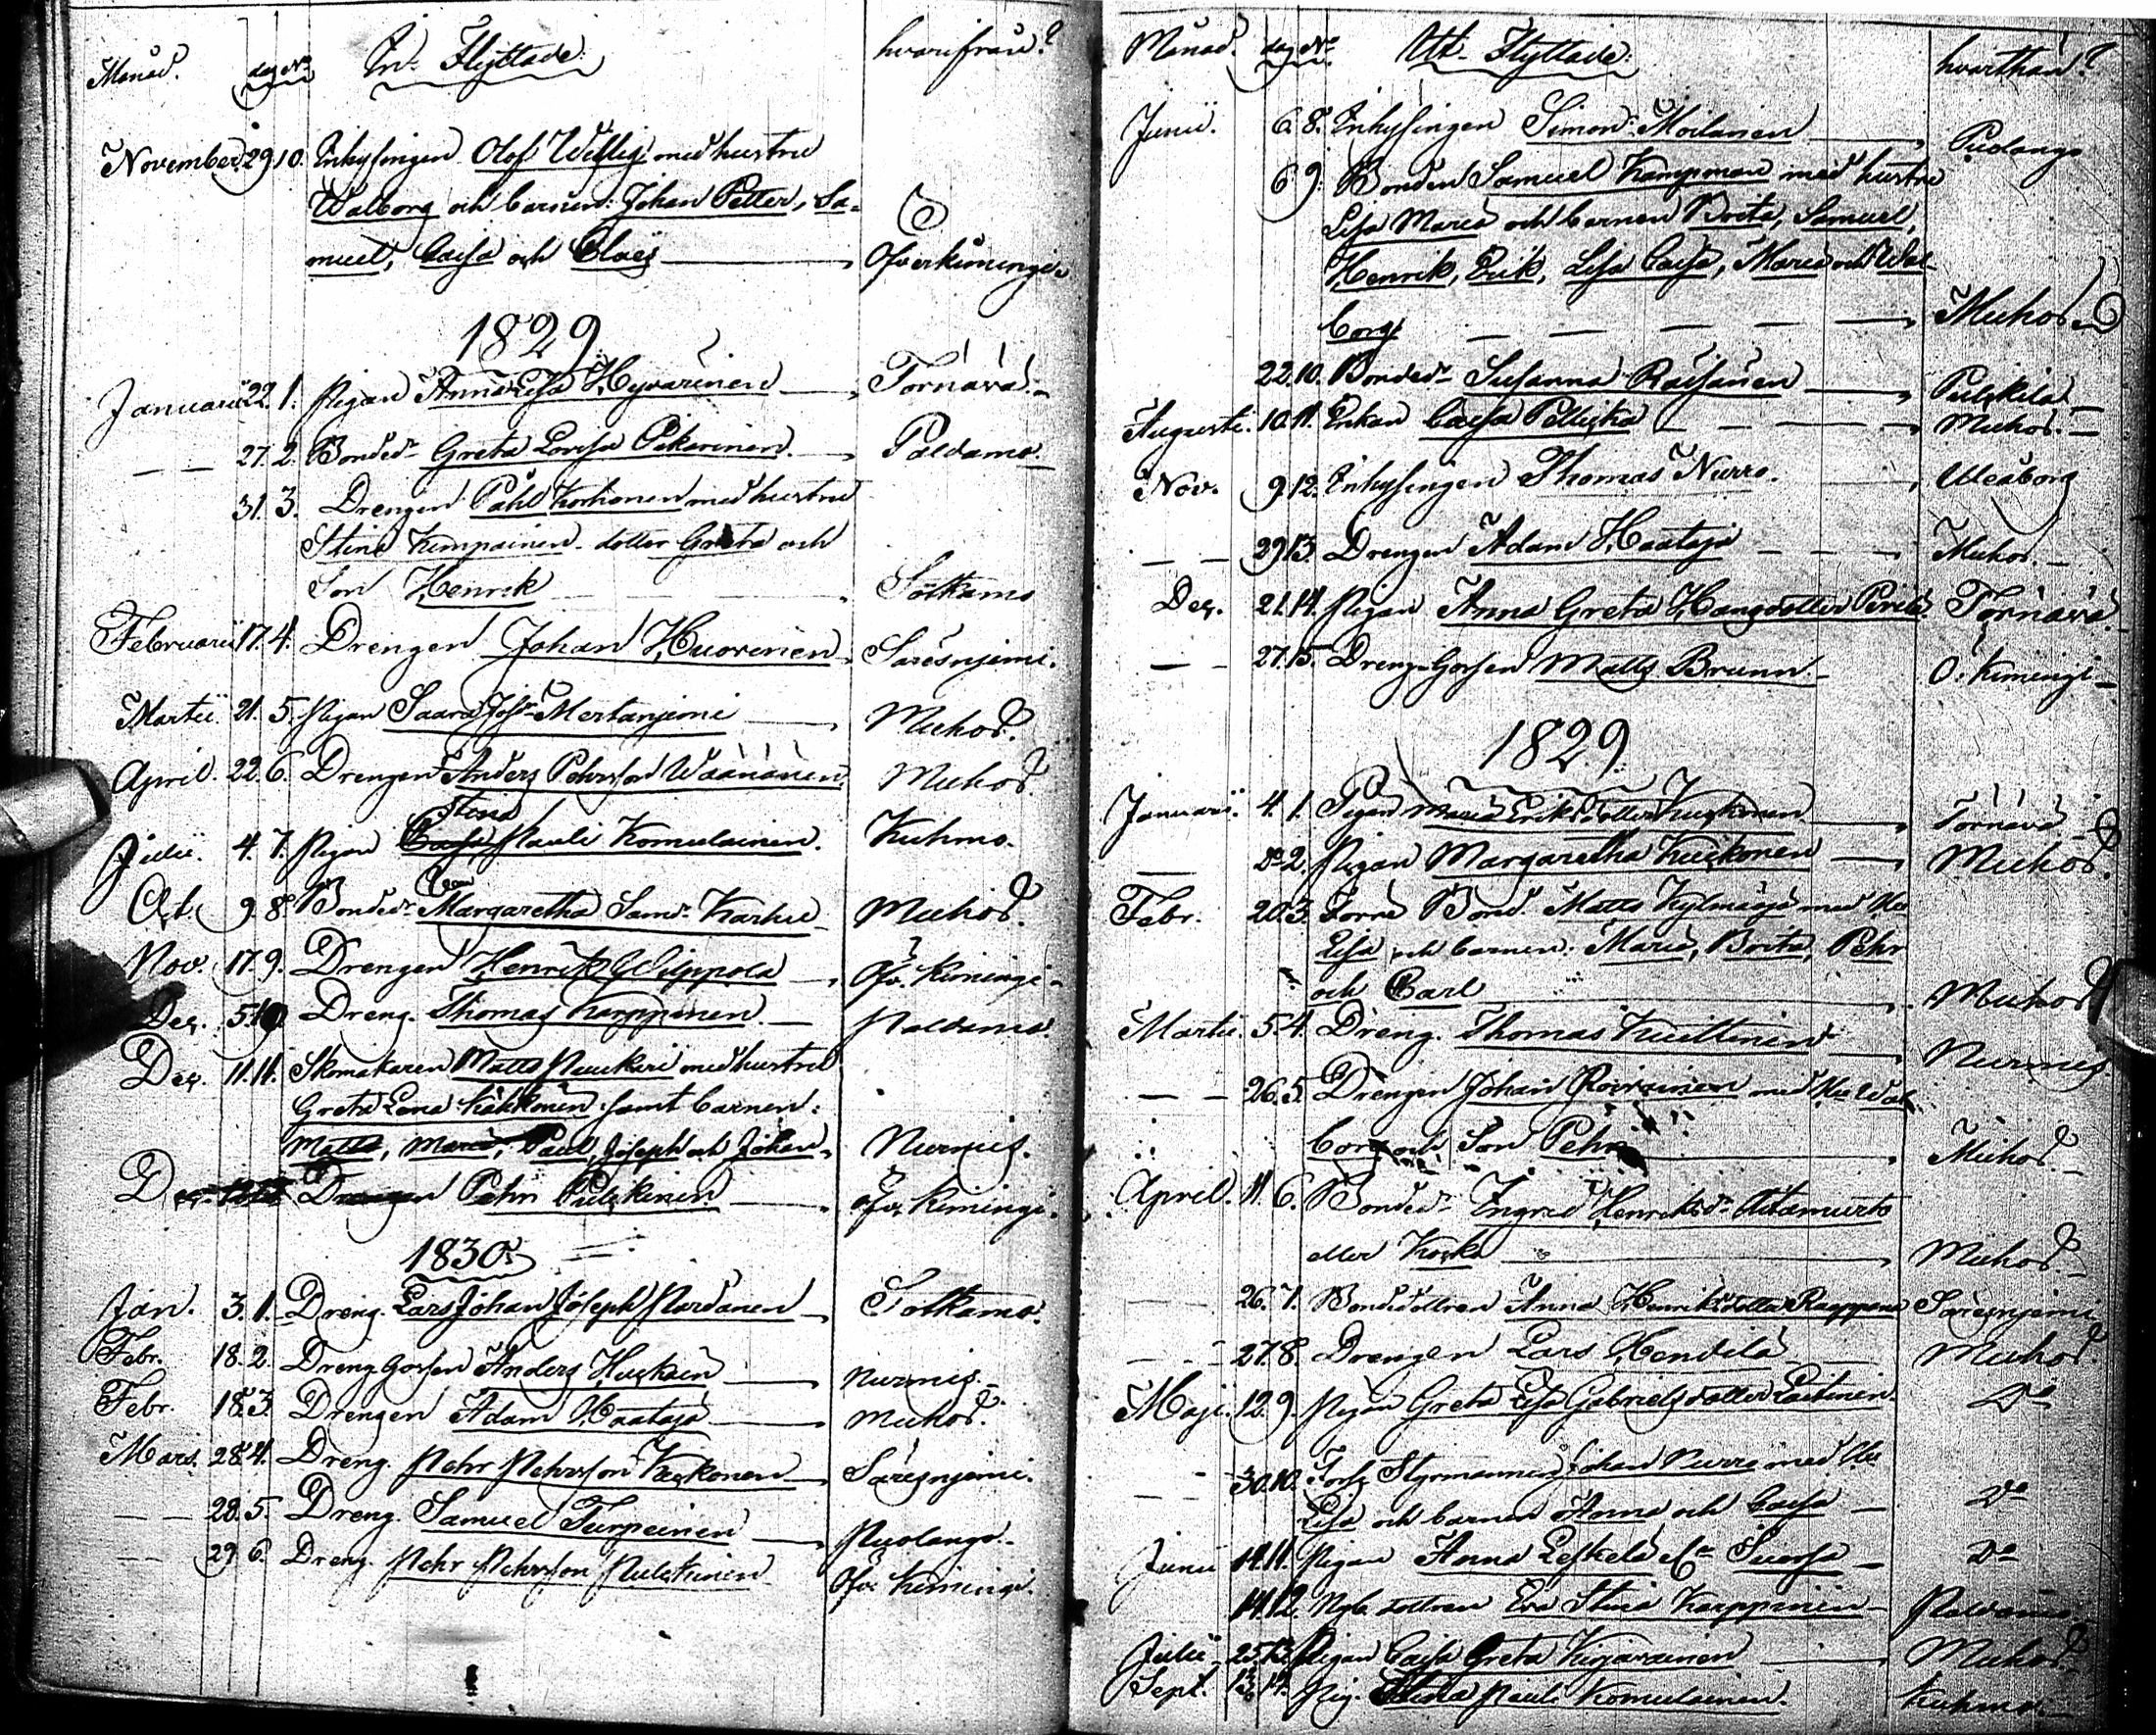 Månad. dag No In-Flyttade. hvarifrån?
November. 29 10. Inhysingen Olof Willig med hustru
Walborg och barnen: Johan Petter, Sa-
muel, Caisa och Claës Öfverkiminge
1829.
Januarii 22. 1. Pigan Anna Lisa Hyvärinen Tornävä.
27. 2. Bonded. Greta Lovisa Pikarinen. Paldamo.
31. 3. Drengen Påhl Korhonen med hustru
Stina Kempainen dotter Greta och
Son Henrik Sotkamo
Februarii 17. 4. Drengen Johan Huovinen Säresnjemi.
Martii. 21. 5. Pigan Saara Josdr Mertanjemi Muhos.
April. 22. 6. Drengen Anders Pehrsson Wäänänen Muhos.
Stina
Julii. 4. 7. Pigan Caisa Pauli Komulainen. Kuhmo.
Oct. 9. 8. Bondedr Margaretha Samdr Karhu Muhos.
Nov. 17. 9. Drengen Henrik Wilppola Öfv. Kiminge
Dec. 5. 10. Dreng. Thomas Karppinen Paldamo.
Dec. 11. 11. Skomakaren Matts Paukkeri med hustru
Greta Lena Kähkönen samt barnen:
Matts, Maria, Paul, Joseph och Johan Nurmis.
Drengen Pehr Pulkkinen Öfv. Kiminge.
1830.
Jan. 3. 1. Dreng. Lars Johan Joseph Pardanen Sotkamo.
Febr. 18. 2. Dreng Gossen Anders Huskoin Nurmis.
Febr. 18. 3. Drengen Adam Haataja Muhos.
Mars. 28. 4. Dreng. Pehr Pehrsson Keskonen Säresnjemi.
28. 5. Dreng. Samuel Turpeinen Puolango.
29 6. Dreng. Pehr Pehrsson Pulkkinen Öfv. Kiminge.
Månad. dag No. Ut-Flyttade. hvarthän?
Junii. 6. 8. Inhysingen Simon Moilanen Pudasjo
6 9. Bonden Samuel Kampman med hustru
Lisa Maria och barnen Brita, Samuel,
Henrik, Erik, Lisa Caisa, Maria och Wal-
borg Muhos
22. 10. Bondedr Susanna Räisänen Pulkila
Augusti. 10. 11. Enkan Caisa Pellikka Muhos.
Nov. 9. 12. Inhysingen Thomas Nurro. Uleåborg
29 13. Drengen Adam Haataja Muhos.
Dec. 21. 14. Pigan Anna Greta Hansdotter Perilä Tornävä
27. 15. Dreng-Gossen Matts Brunn. Ö. Kiminge
1829.
Januarii. 4. 1. Pigan Maria Eriksdotter Kuskonen Tornävä.
Do 2. Pigan Margaretha Kuikonen Muhos.
Febr. 20. 3. Förre Bond. Matts Kylmäoja med Hu
Lisa och barnen: Maria, Brita, Pehr
och Carl Muhos
Martii. 5. 4. Dreng. Thomas Kuittinen Nurmis
26. 5. Drengen Johan Roivainen med Hu Wal
borg och Son Pehr Muhos.
April. 11. 6. Bondedr Ingrid Henriksdr Aitamurto
eller Koski Muhos.
26. 7. Bondedottren Anna Henriksdotter Raappana Säresnjemi
27 8. Drengen Lars Hendilä Muhos.
Maji. 12. 9. Pigan Greta Lisa Gabrielsdotter Laitinen. Do
30. 10. Styrmannen Johan Nurro med Hu
Lisa och barnen Anna och Caisa Do
Junii 14. 11. Pigan Anna Leskelä Do
14. 12. Nyb. dottren Eva Stina Karppinen Paldamo.
Julii 25. 13. Pigan Caisa Greta Kinjavainen Muhos.
Sept. 14. Pig. Stina Pauli Komulainen. Kuhmo.